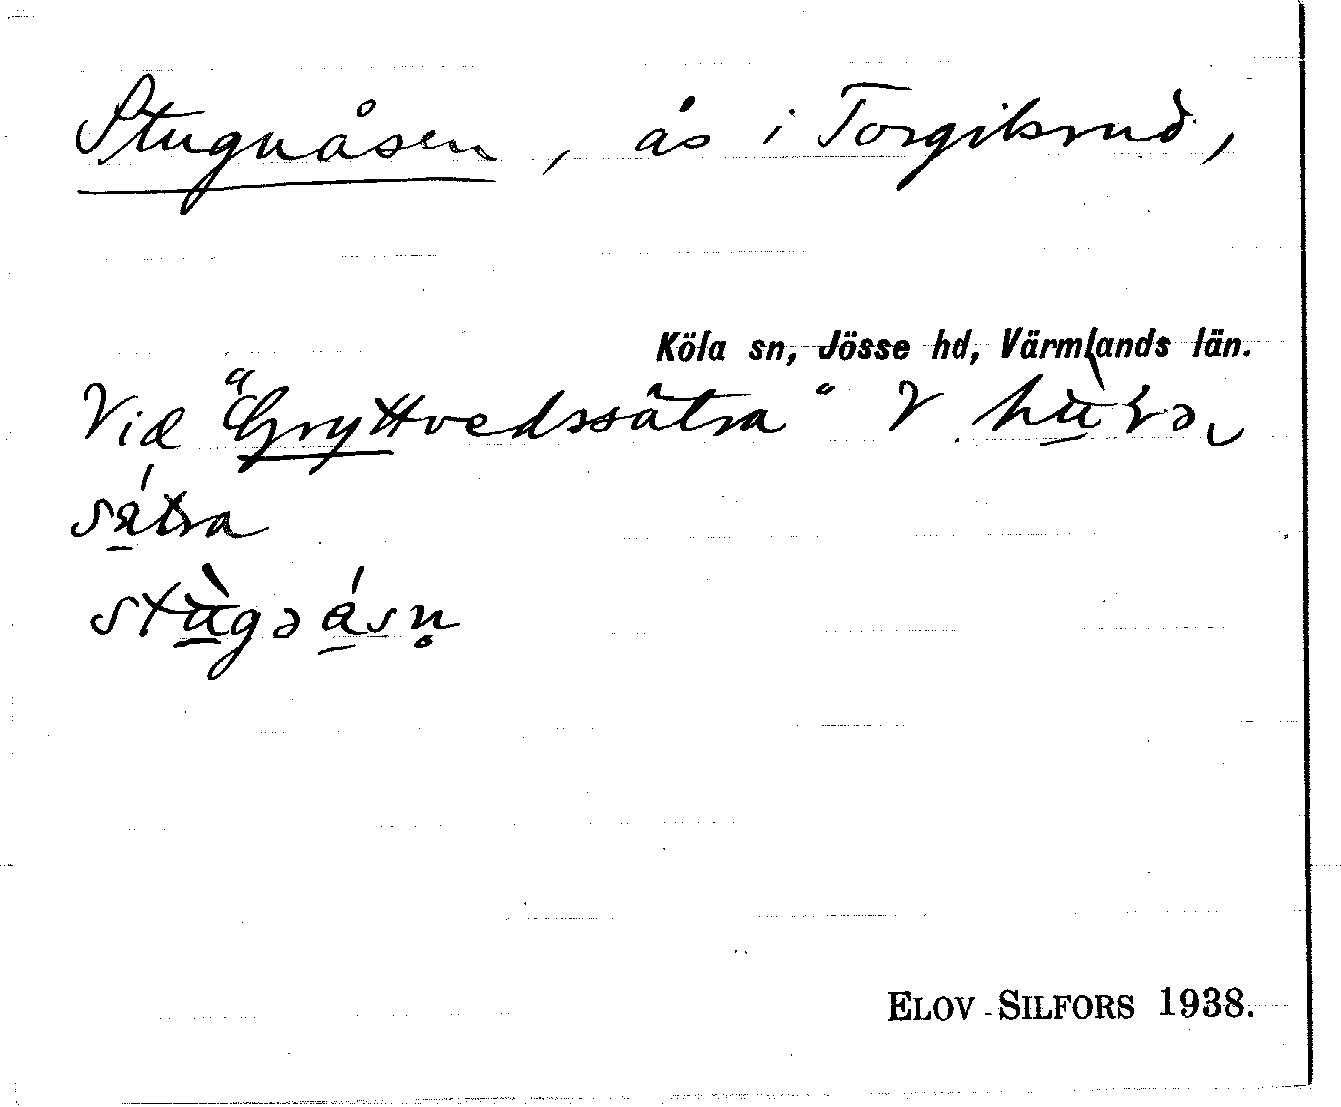 Stugnåsen, ås i Torgilsrud,
Köla sn, Jösse hd, Värmlands län.
Vid "Gryttvedssätra" V
sátra
stùgəásn̥
ELOV SILFORS 1938.